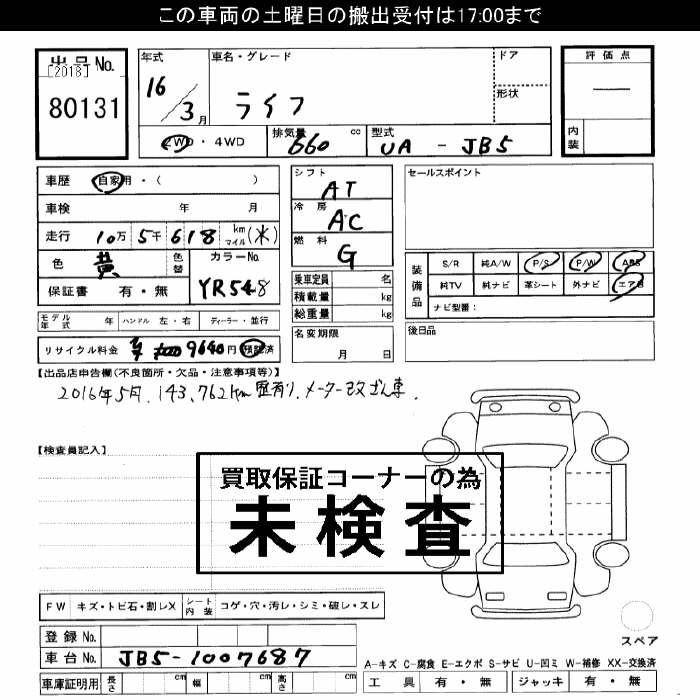 この車両の土曜日の搬出受付は17:00まで
出品No.
[2018]
80131
年式
16/3月
車名・グレード
ライフ
ドア
形状
評価点
—
内装
2WD・4WD
排気量 660 cc
型式 UA - JB5
車歴 自家用・( )
車検 年 月
走行 10万5千618 km マイル(米)
色 黄 色替 カラーNo. YR548
保証書 有・無
シフト AT
冷房 AC
燃料 G
乗車定員 名
積載量 kg
総重量 kg
名変期限
月 日
セールスポイント
装備品
S/R 純A/W P/S P/W ABS
純TV 純ナビ 革シート 外ナビ エアB
ナビ型番:
後日品
モデル年式 年 ハンドル 左・右 ディーラー・並行
リサイクル料金 9640円 預託済
【出品店申告欄(不良箇所・欠品・注意事項等)】
2016年5月、143,762km歴有り、メーター改ざん車.
【検査員記入】
買取保証コーナーの為
未検査
FW キズ・トビ石・割レX シート内装 コゲ・穴・汚レ・シミ・破レ・スレ
登録No.
車台No. JB5-1007687
車庫証明用 長さ cm 幅 cm 高さ cm
スペア
A-キズ C-腐食 E-エクボ S-サビ U-凹ミ W-補修 XX-交換済
工具 有・無 ジャッキ 有・無